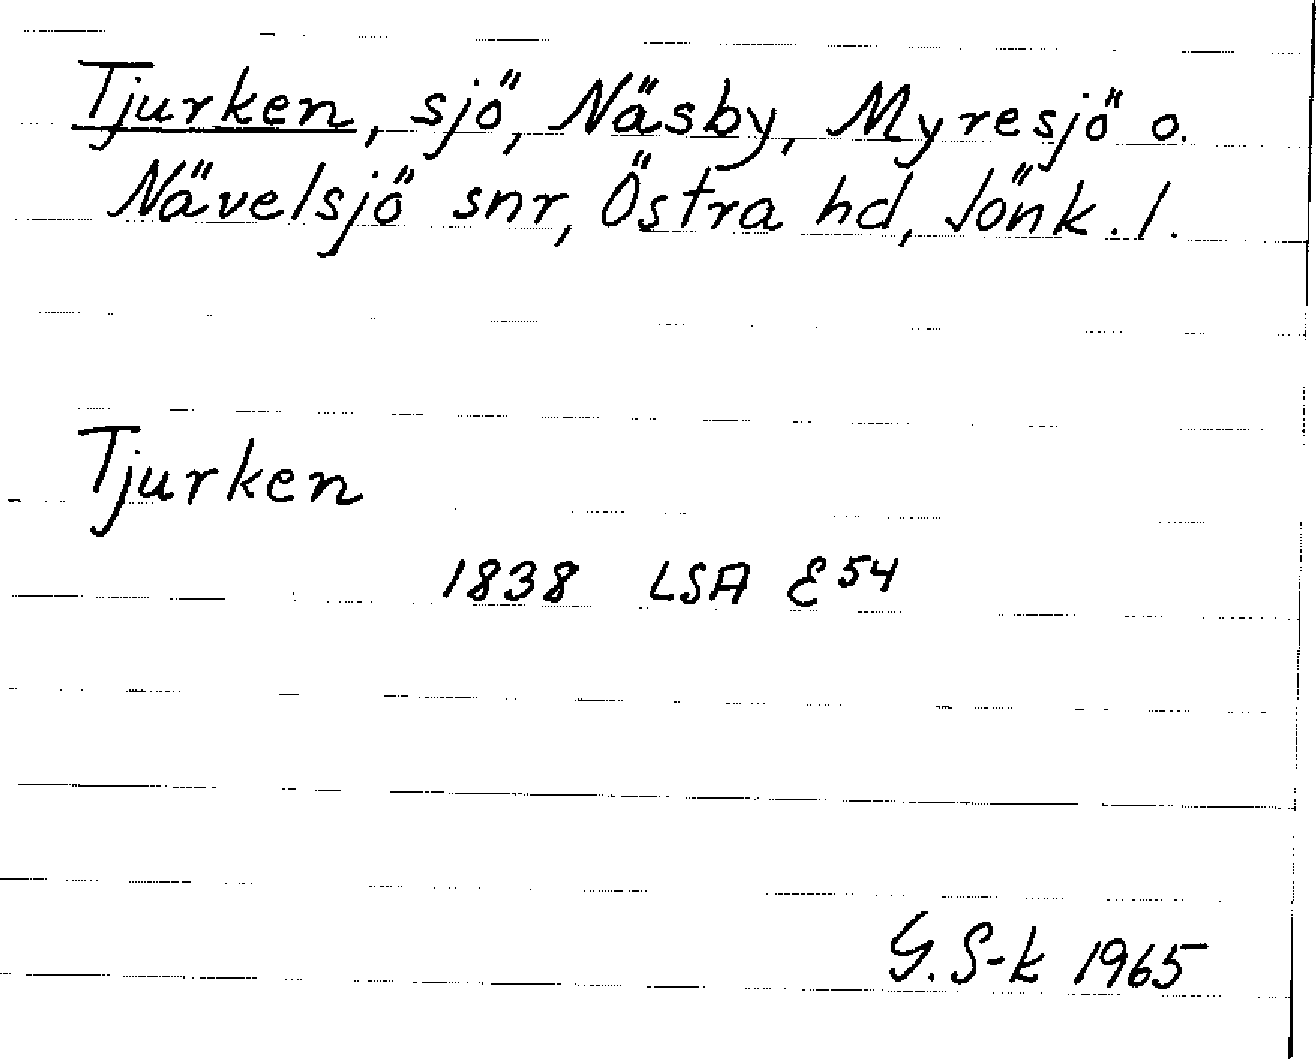 Tjurken, sjö, Näsby, Myresjö o.
Nävelsjö snr, Östra hd, Jönk. l.
Tjurken
1838 LSA E54
G. S-k 1965